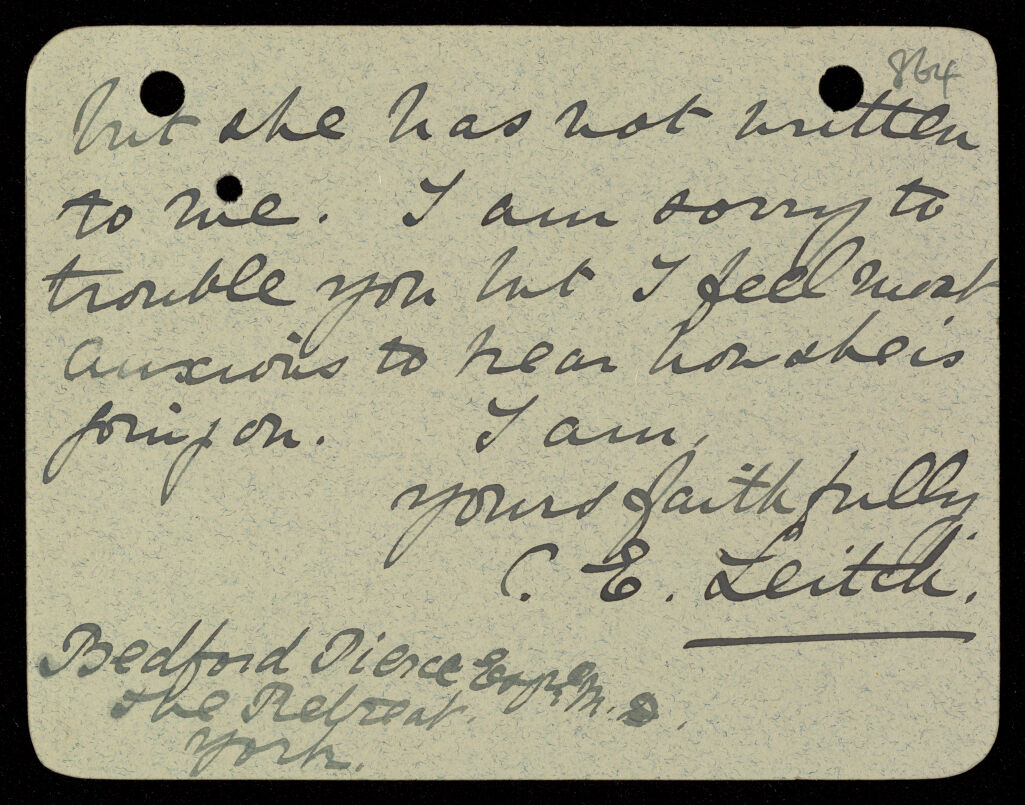 864
but she has not written
to me. I am sorry to
trouble you but I feel most
anxious to hear how she is
going on. I am,
yours faithfully
C. E. Leitch.
Bedford Pierce Esqre M.D.
The Retreat.
York.